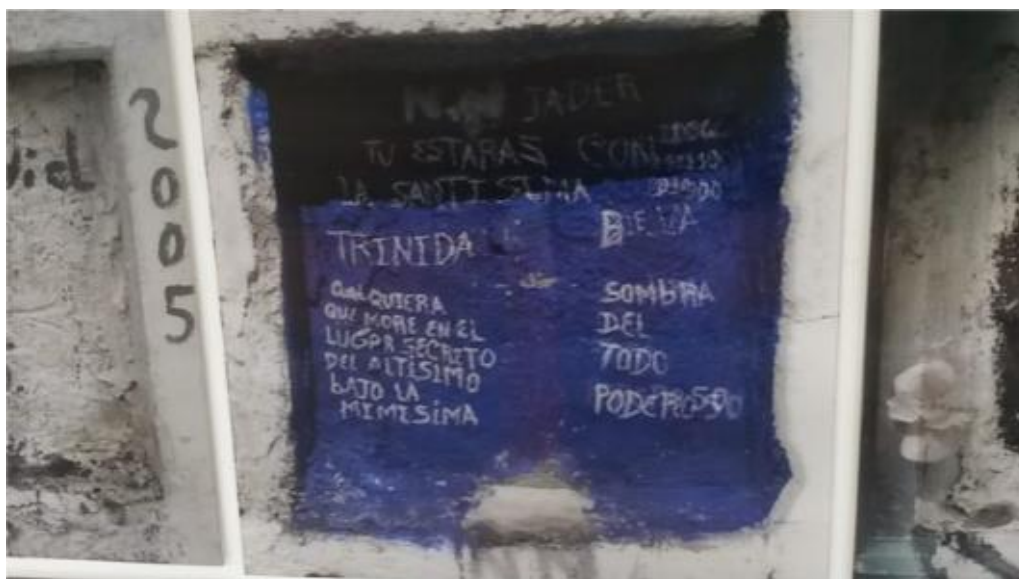 2005
N.N JADER
TU ESTARAS CON
LA SANTISIMA
TRINIDA
QUALQUIERA
QUE MORE EN EL
LUGPR SECRETO
DEL ALTISIMO
BAJO LA
MIMISIMA
SOMBRA
DEL
TODO
PODEROSO